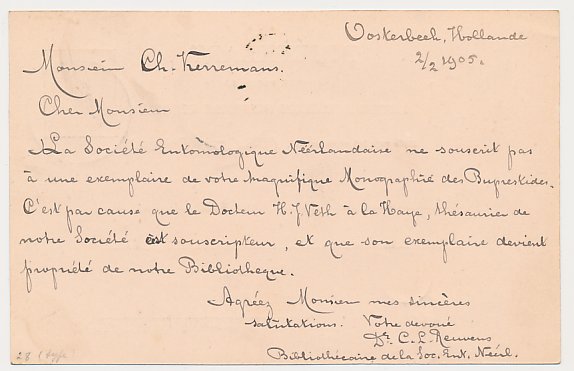 Oosterbeek, Hollande
2/2 1905.
Monsieur Ch. Kerremans.
Cher Monsieur
La Société Entomologique Néerlandaise ne souscrit pas
à une exemplaire de votre magnifique Monographie des Buprestides.
C'est par cause que le Docteur H.J. Veth à la Haye, thésaurier de
notre Société est souscripteur, et que son exemplaire devient
propriété de notre Bibliotheque.
Agréez Monsieur mes sincères
salutations. Votre devoué
Dr. C. L. Reuvens
Bibliothécaire de la Soc. Ent. Néérl.
28